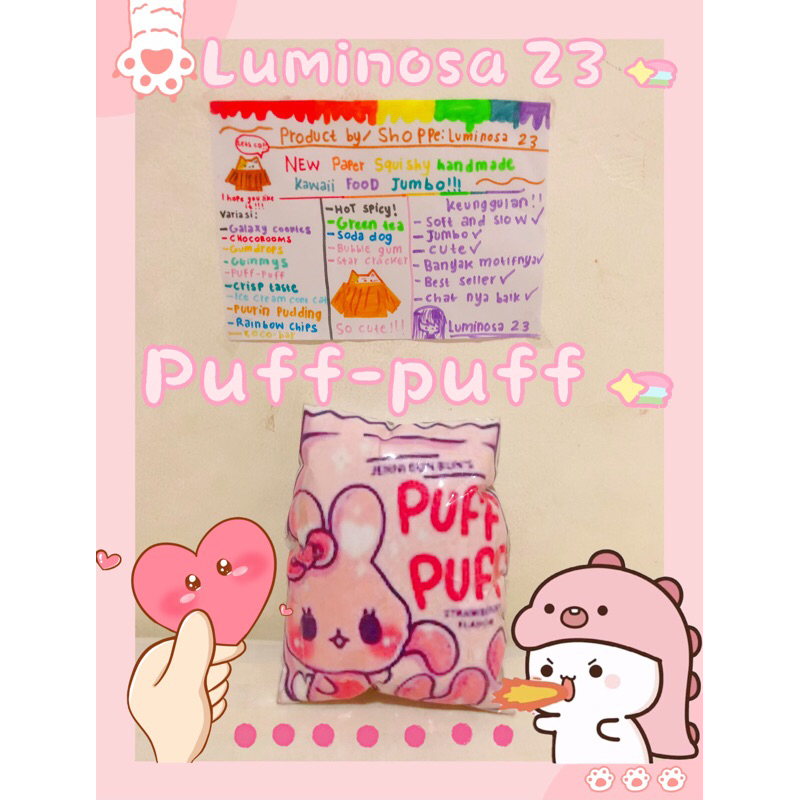 Luminosa 23
Product by/ Shoppe: Luminosa 23
NEW Paper Squishy handmade
Kawaii FOOD Jumbo!!!
I hope you like
it!!!
Variasi:
- Galaxy cookies
- CHOCOROOMS
- Gumdrops
- Gummys
- PUFF-PUFF
- Crisp taste
- Ice cream cone cat
- Purrin Pudding
- Rainbow Chips
- HOT spicy!
- Green tea
- Soda dog
- Bubble gum
- Star cracker
So cute!!!
Keunggulan!!
- Soft and slow ✓
- Jumbo ✓
- Cute ✓
- Banyak motifnya ✓
- Best seller ✓
- Chat nya baik ✓
Luminosa 23
Puff-puff
JENNA BUN BUN'S
PUFF
PUFF
STRAWBERRY
FLAVOR